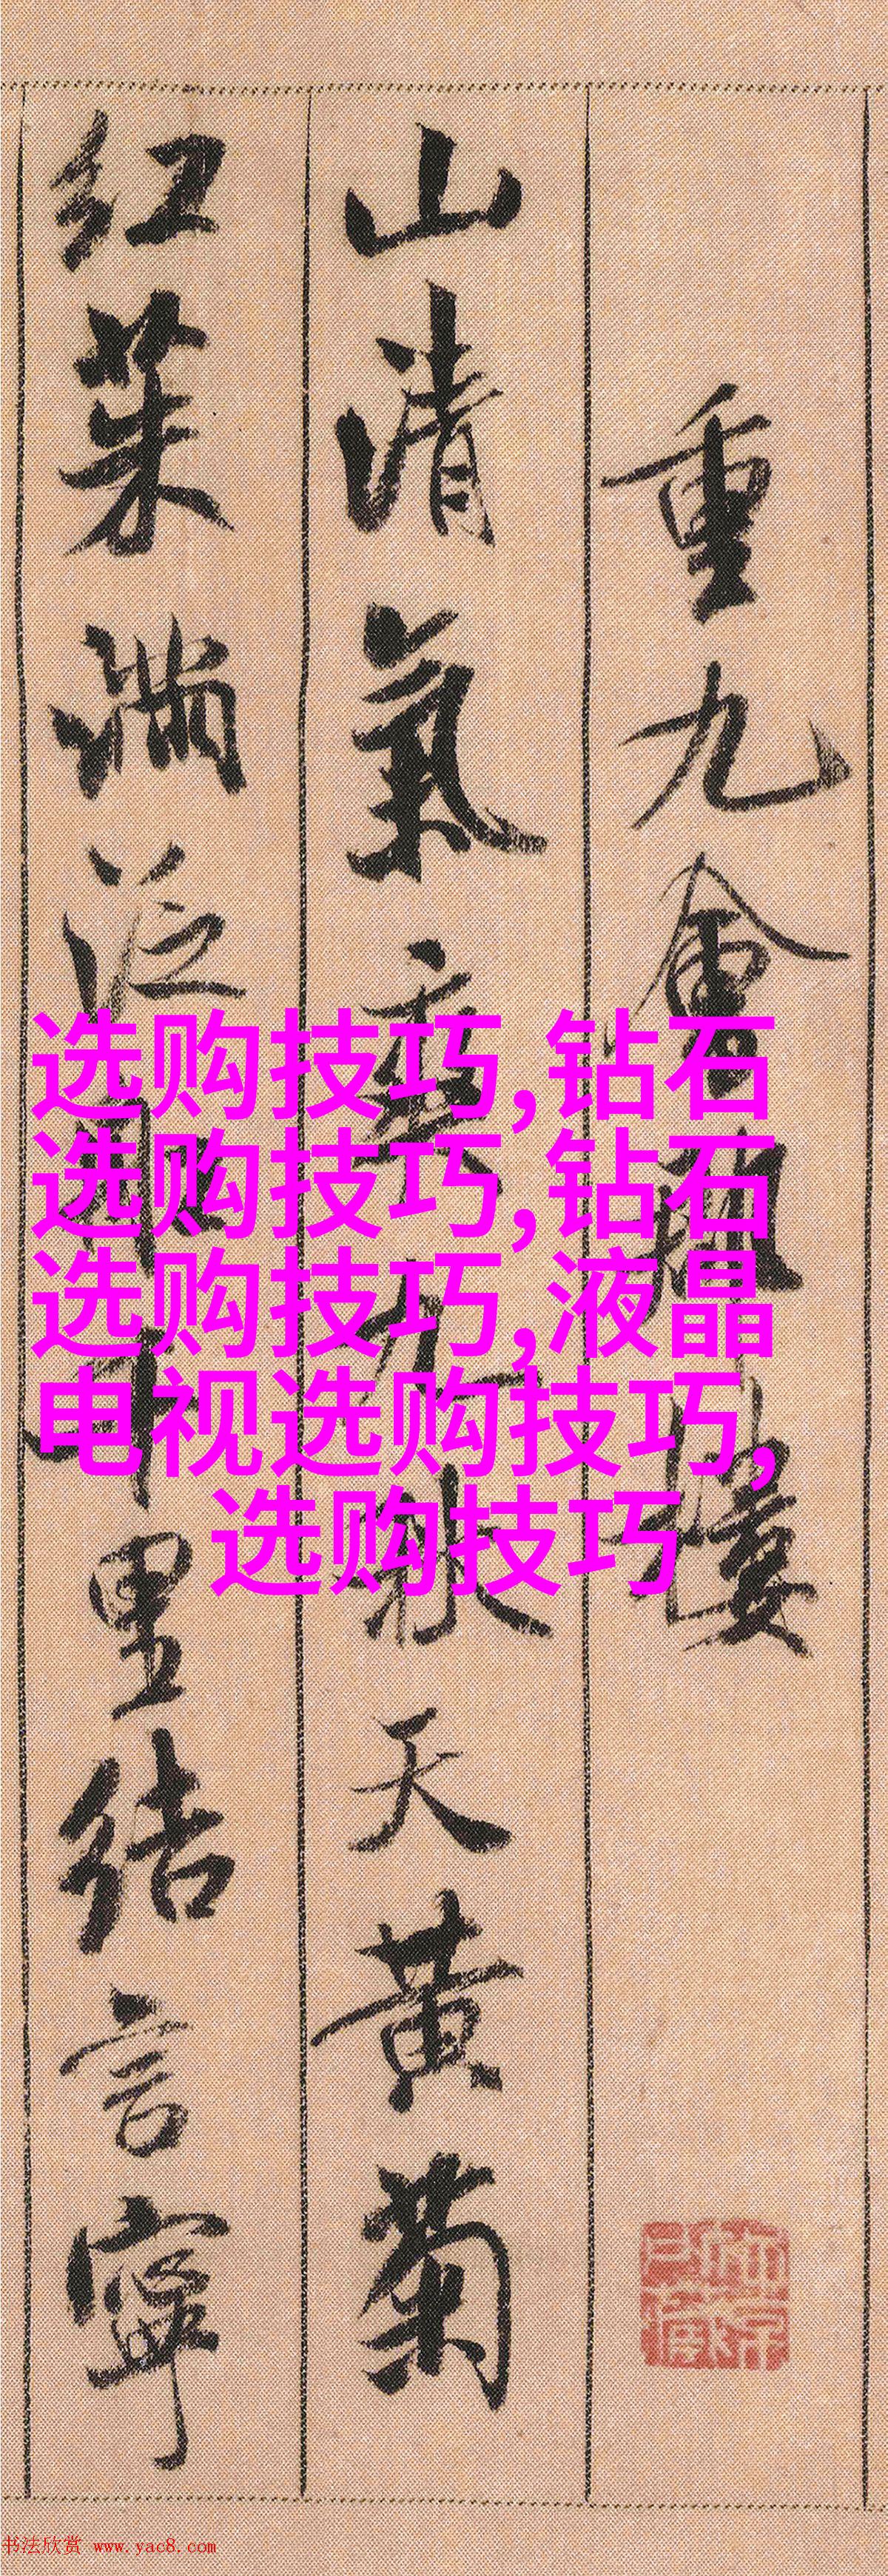 重九會郡樓
山清氣爽九秋天黃菊
紅茱滿泛船千里結言寧
选购技巧,钻石
选购技巧,钻石
选购技巧,液晶
电视选购技巧,
选购技巧
书法欣赏 www.yac8.com